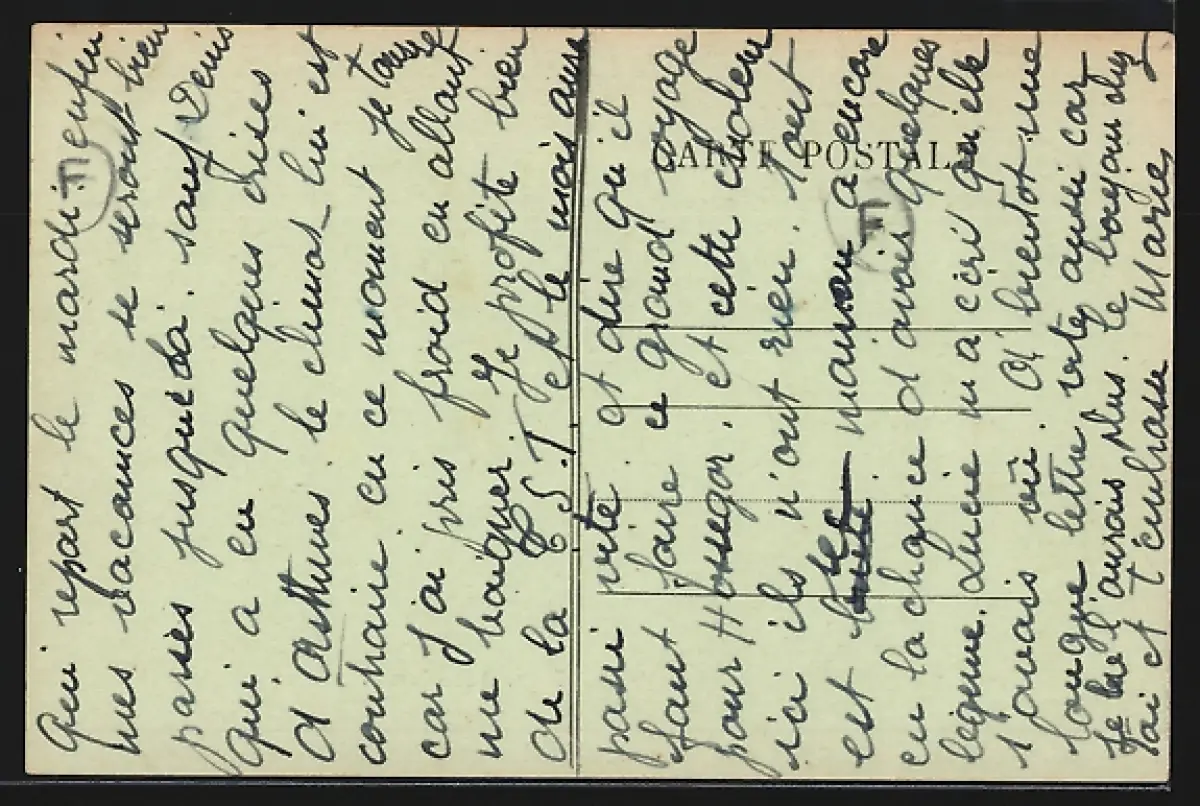 qui repart le mardi. enfin
mes vacances se seront bien
passées jusque là. sauf Denis
qui a eu quelques crises
d asthmes. le climat lui est
contraire. en ce moment je tousse
car J ai pris froid en allant
me baigner. Je profite bien
de la C S.T et le mois aura
passé vite. et dire qu il
faut faire ce grand voyage
pour Hossegor. et cette choleur
ici ils n'ont rien. tout
est sec maman a encore
eu la chance d avoir quelques
légume. Lucie m a écri qu elle
t'avais vu. A bientot une
longue lettre votes aussi car
je ne l'aurais plus. le bonjour chez
toi et t'embrasse Marie
CARTE POSTALE